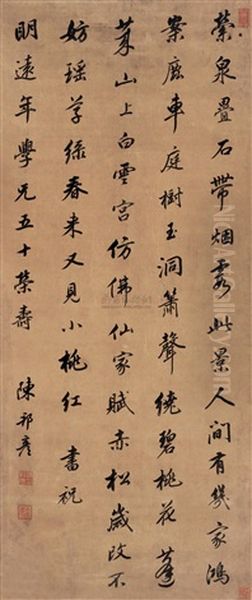 縈泉疊石帶烟霞此景人間有幾家鴻
案鹿車庭樹玉洞簫聲繞碧桃花蓬
萊山上白雲宮仿佛仙家賦赤松歲改不
妨瑤草綠春來又見小桃紅 書祝
明遠年學兄五十榮壽 陳邦彥